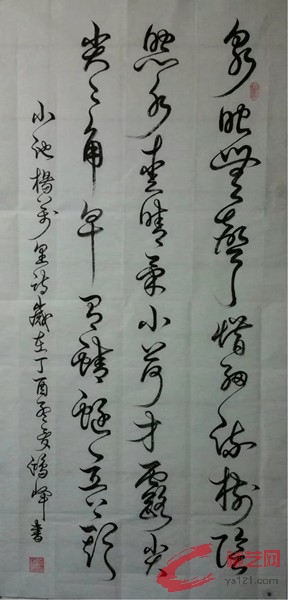 泉眼無聲惜細流樹陰
照水愛晴柔小荷才露尖
尖々角早有蜻蜓立上頭
小池楊萬里詩歲在丁酉夏鴻峰書
艺网
ys121.com